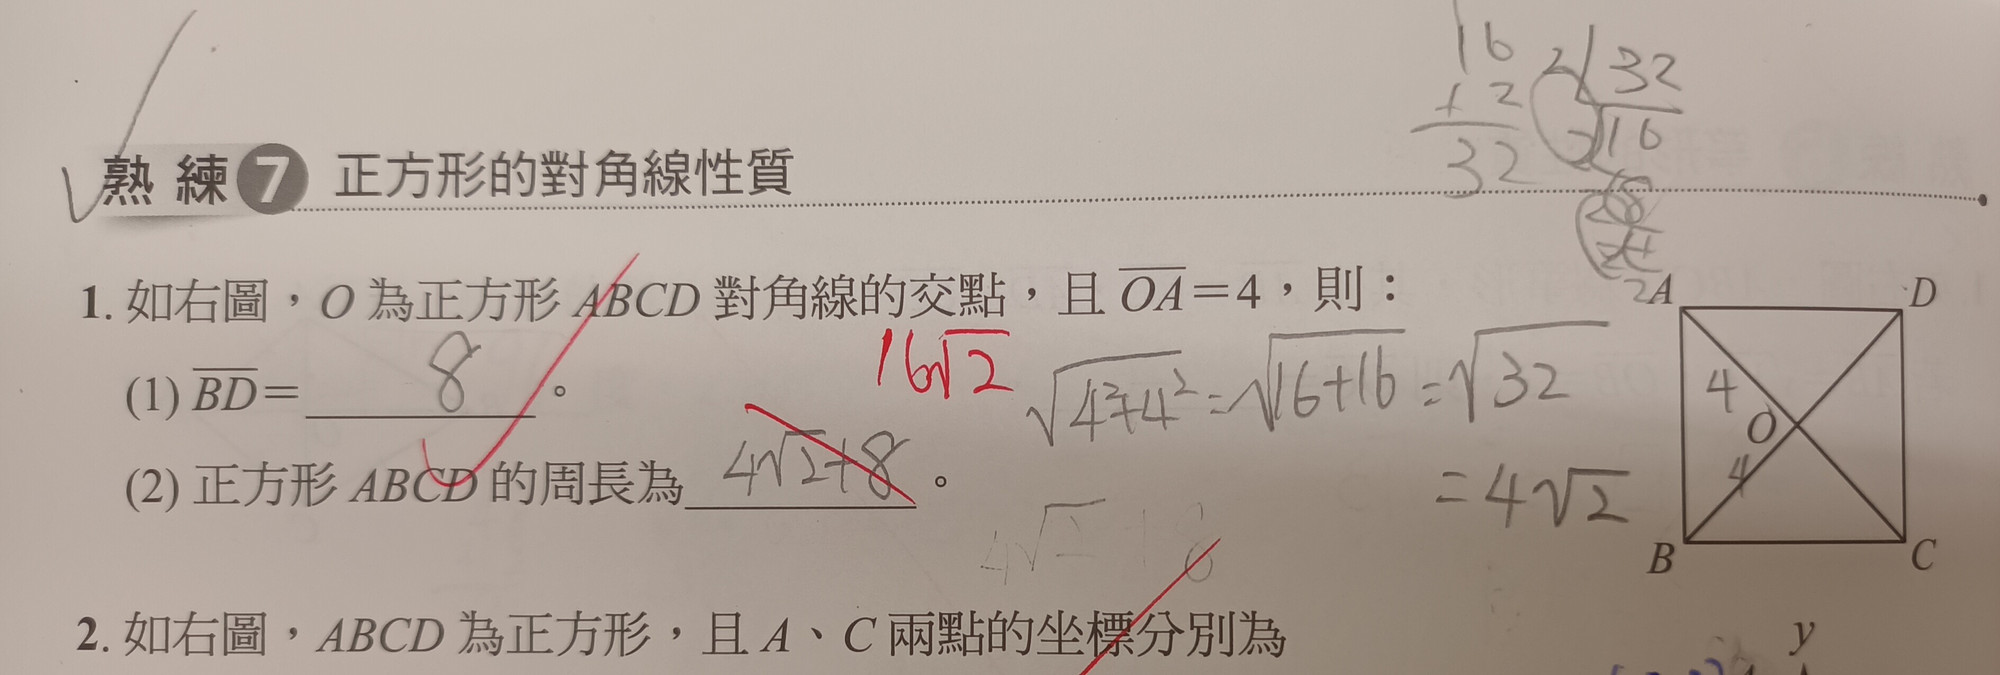 16
×2
32
2 32
2 16
28
24
2
熟練 7 正方形的對角線性質
1. 如右圖，O 為正方形 ABCD 對角線的交點，且 OA=4，則：
(1) BD= 8 。
16√2
√4²+4² = √16+16 = √32
= 4√2
(2) 正方形 ABCD 的周長為 4√2+8 。
4√2+8
A D
4
O
4
B C
2. 如右圖，ABCD 為正方形，且 A、C 兩點的坐標分別為
y